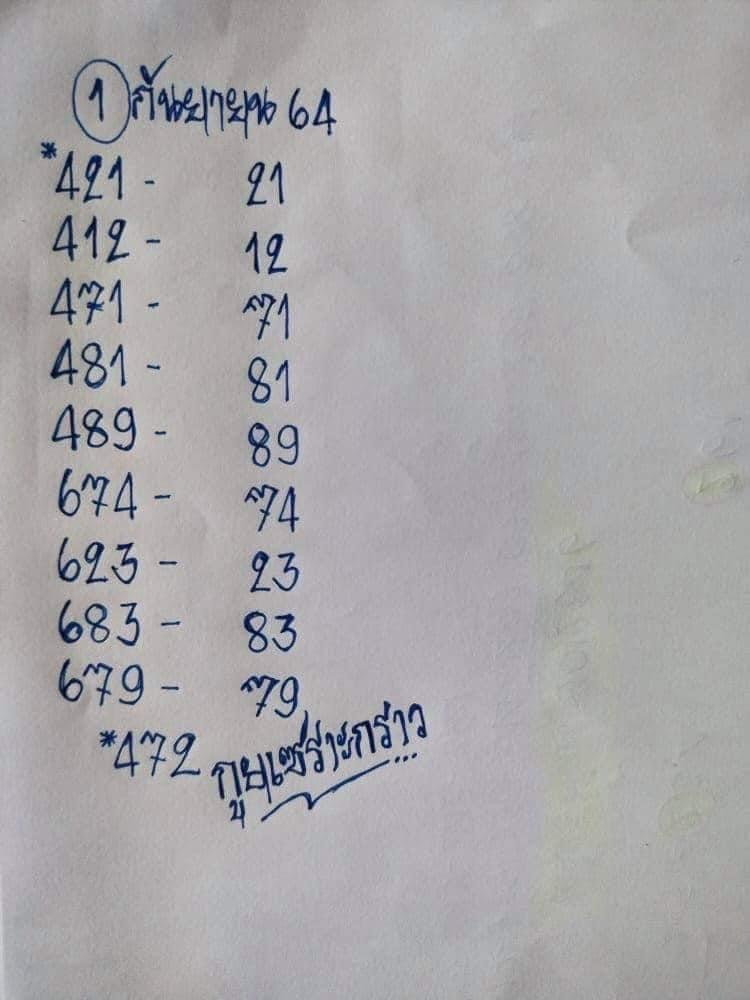 1 กันยายน 64
*421 - 21
412 - 12
471 - 71
481 - 81
489 - 89
674 - 74
623 - 23
683 - 83
679 - 79
*472